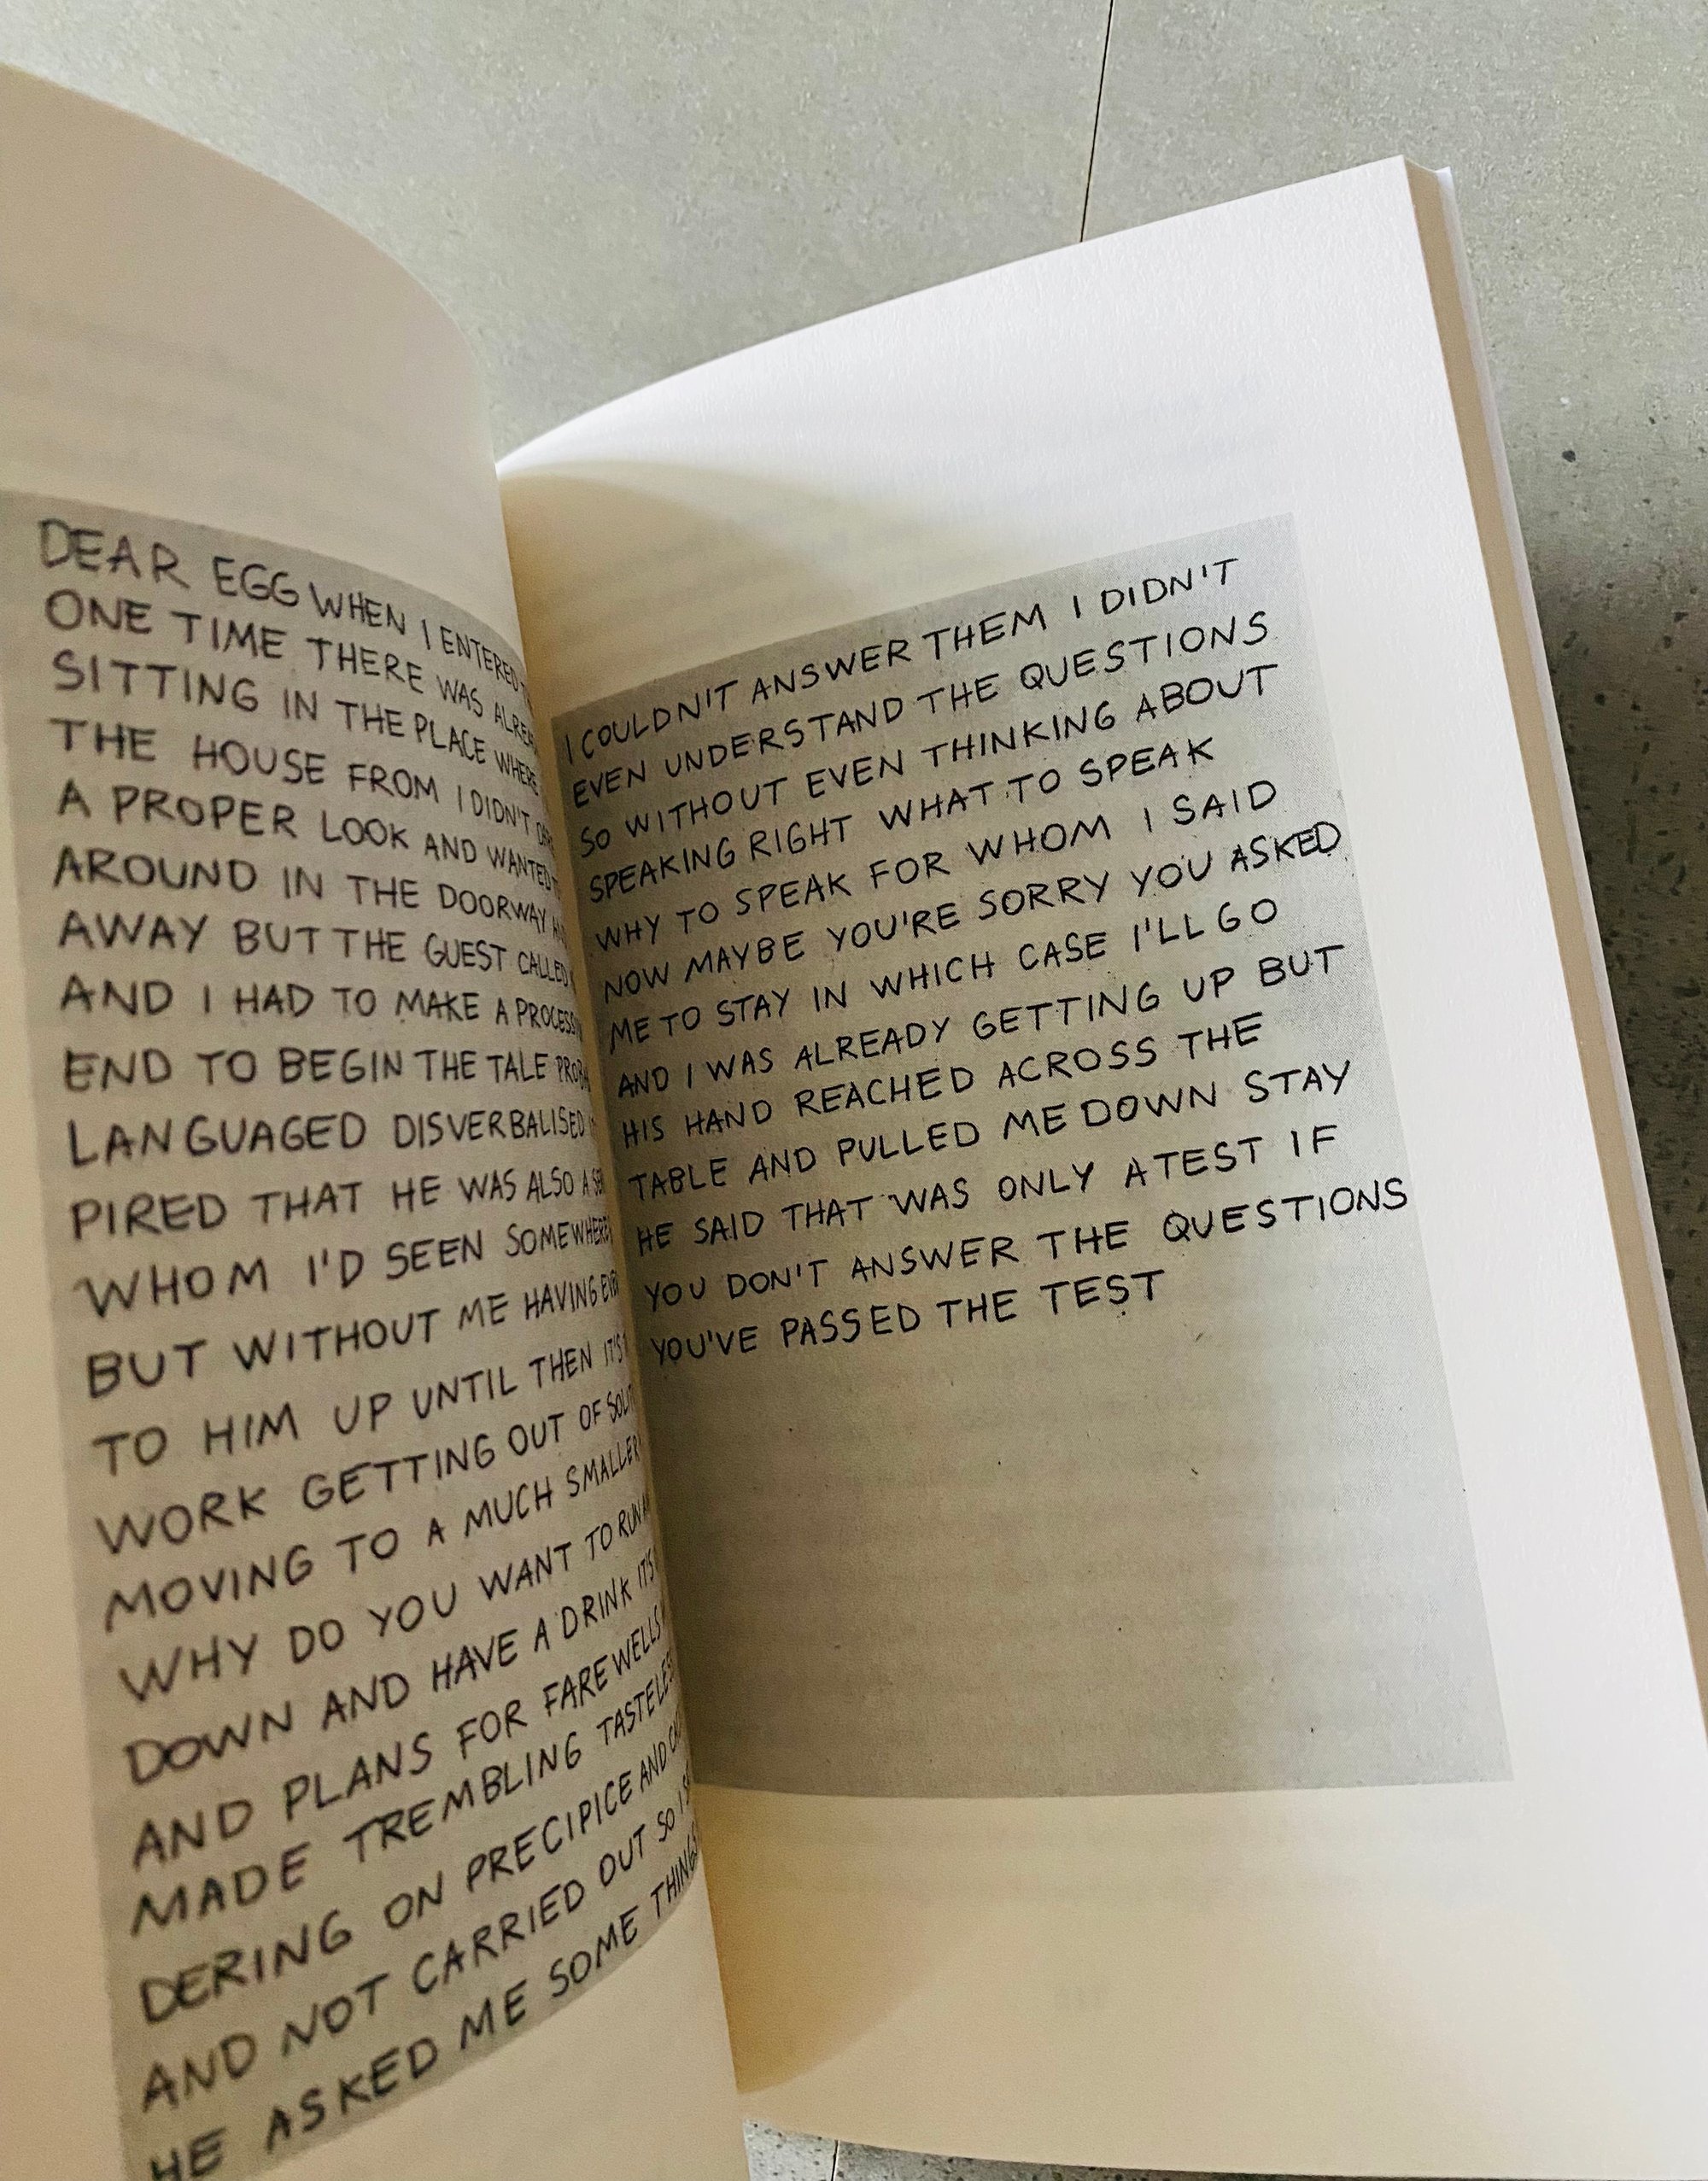 DEAR EGG WHEN I ENTERED
ONE TIME THERE WAS
SITTING IN THE PLACE WHERE
THE HOUSE FROM I DIDN'T
A PROPER LOOK AND WANTED
AROUND IN THE DOORWAY
AWAY BUT THE GUEST CALLED
AND I HAD TO MAKE A
END TO BEGIN THE TALE
LANGUAGED DISVERBALISED
PIRED THAT HE WAS ALSO A
WHOM I'D SEEN SOMEWHERE
BUT WITHOUT ME HAVING
TO HIM UP UNTIL THEN IT'S
WORK GETTING OUT OF
MOVING TO A MUCH SMALLER
WHY DO YOU WANT TO RUN
DOWN AND HAVE A DRINK IT'S
AND PLANS FOR FAREWELLS
MADE TREMBLING
DERING ON PRECIPICE AND
AND NOT CARRIED OUT SO I
HE ASKED ME SOME THINGS
I COULDN'T ANSWER THEM I DIDN'T
EVEN UNDERSTAND THE QUESTIONS
SO WITHOUT EVEN THINKING ABOUT
SPEAKING RIGHT WHAT TO SPEAK
WHY TO SPEAK FOR WHOM I SAID
NOW MAYBE YOU'RE SORRY YOU ASKED
ME TO STAY IN WHICH CASE I'LL GO
AND I WAS ALREADY GETTING UP BUT
HIS HAND REACHED ACROSS THE
TABLE AND PULLED ME DOWN STAY
HE SAID THAT WAS ONLY A TEST IF
YOU DON'T ANSWER THE QUESTIONS
YOU'VE PASSED THE TEST